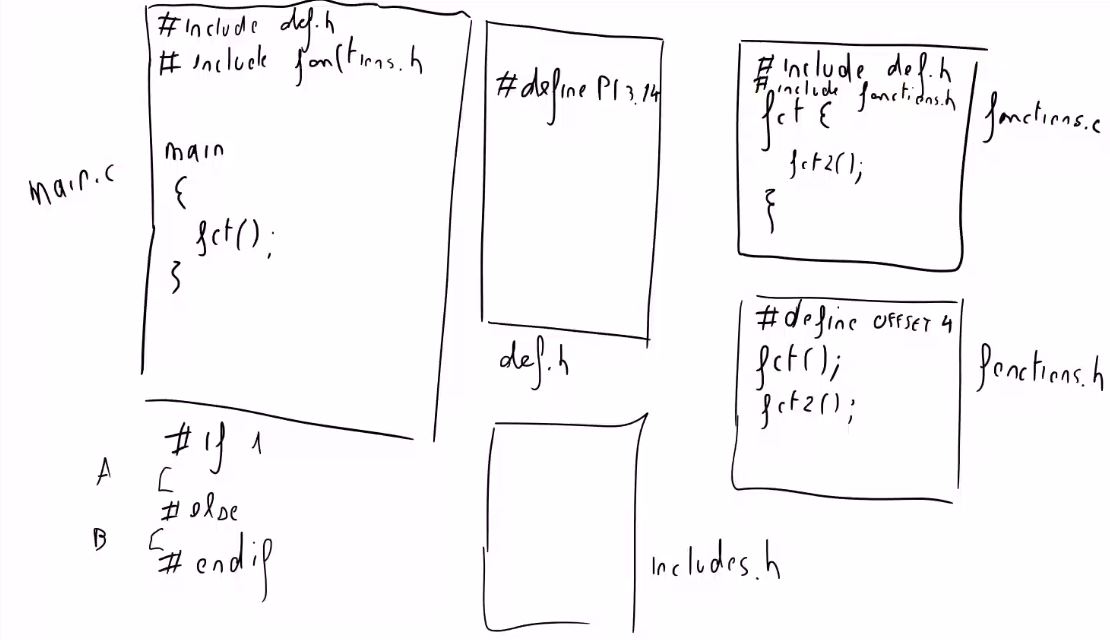 main.c
#include def.h
#include fonctions.h
main
{
fct();
}
#define PI 3.14
def.h
#include def.h
#include fonctions.h
fct {
fct2();
}
fonctions.c
#define OFFSET 4
fct();
fct2();
fonctions.h
#if 1
A [
#else
B [
#endif
includes.h